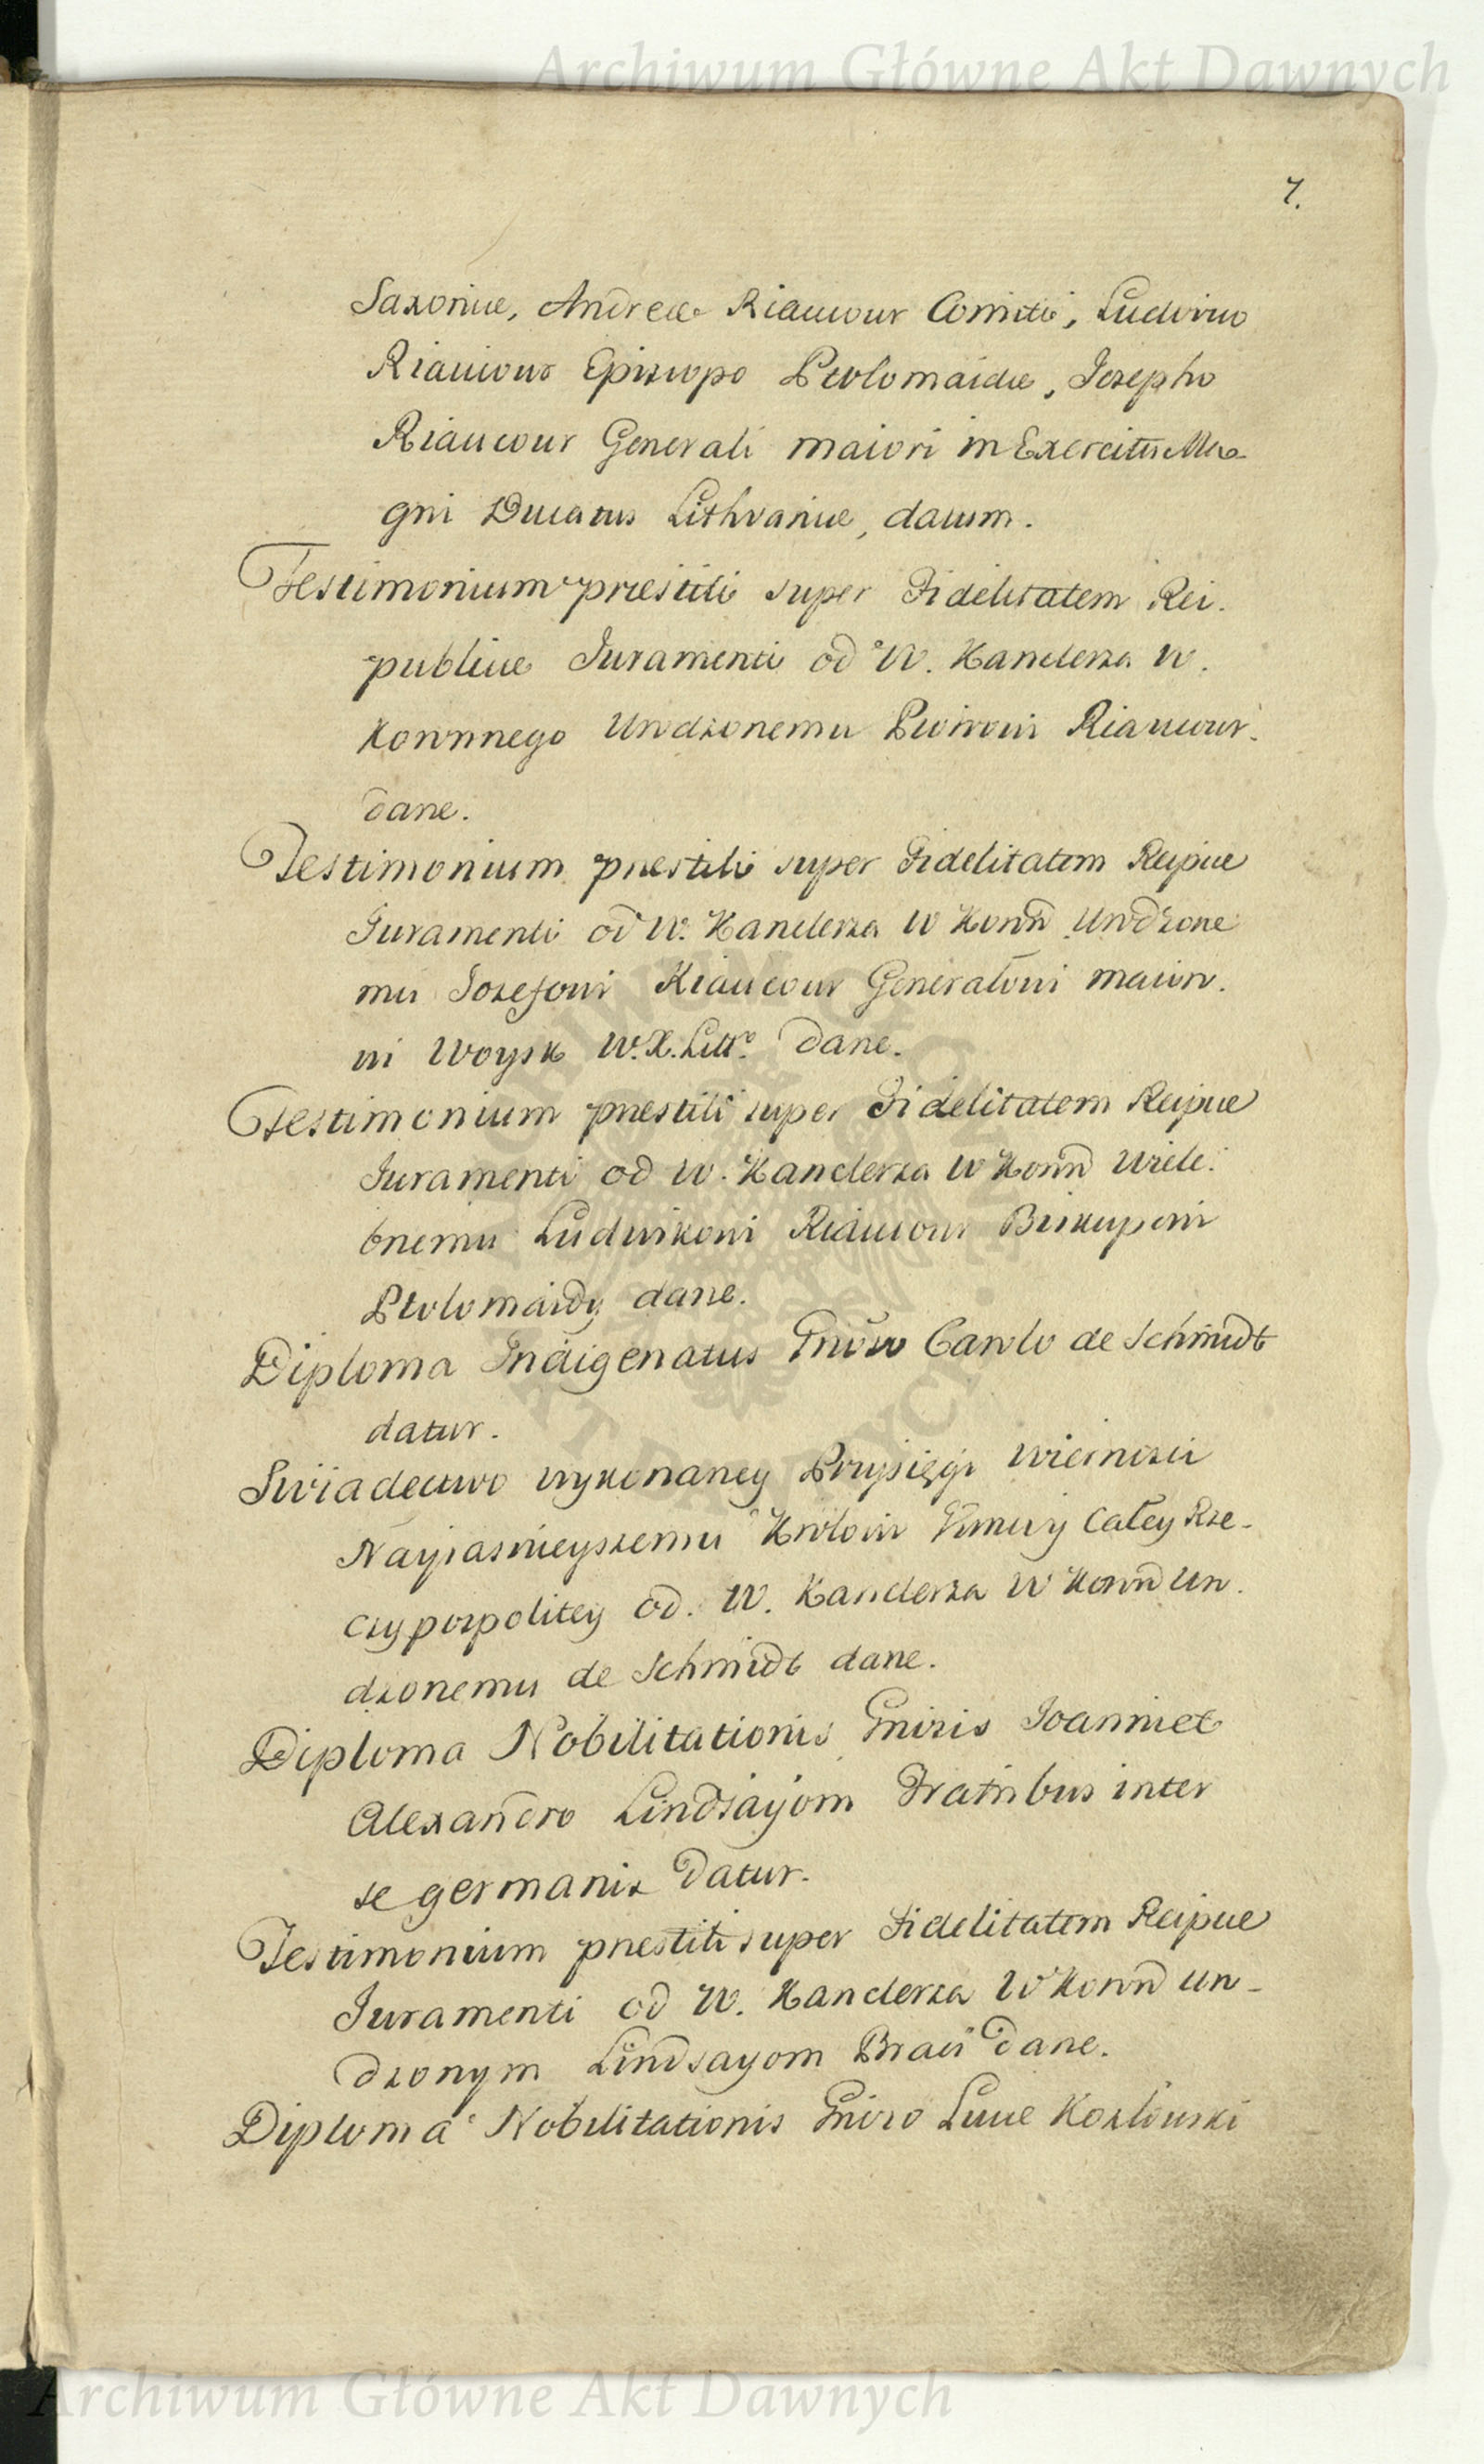 Archiwum Główne Akt Dawnych
7.
Saxoniæ, Andreæ Riaucour Comiti, Ludovico
Riaucour Episcopo Ptolomaidæ, Josepho
Riaucour Generali maiori in Exercitu Ma-
gni Ducatus Lithvaniæ, datum.
Testimonium præstiti super Fidelitatem Rei.
publicæ Juramenti od W. Kanclerza W.
Koronnego Urodzonemu Riaucour.
dane.
Testimonium præstiti super Fidelitatem Reipcæ
Juramenti od W. Kanclerza W Koronn Urodzone
mu Jozefowi Riaucour Generałowi maioro.
wi Woysk W.X.Litt° dane.
Testimonium præstiti super Fidelitatem Reipcæ
Juramenti od W. Kanclerza W Koronn Wiele.
bnemu Ludwikowi Riaucour Biskupowi
Ptolomaidy dane.
Diploma Indigenatus Gnōso Carolo de Schmidt
datur.
Swiadectwo wykonaney Przysięgi wiernosci
Nayiasnieyszemu Krolowi Jmci y Całey Rze-
czypospolitey od. W. Kanclerza W Koronn Uro.
dzonemu de Schmidt dane.
Diploma Nobilitationis Gnisis Joanni et
Alexandro Lindsayom Fratribus inter
se germanis datur.
Testimonium præstiti super Fidelitatem Reipcæ
Juramenti od W. Kanclerza W Koronn Uro-
dzonym Lindsayom Braci dane.
Diploma Nobilitationis Gniso Lucæ Kozłowski
Archiwum Główne Akt Dawnych